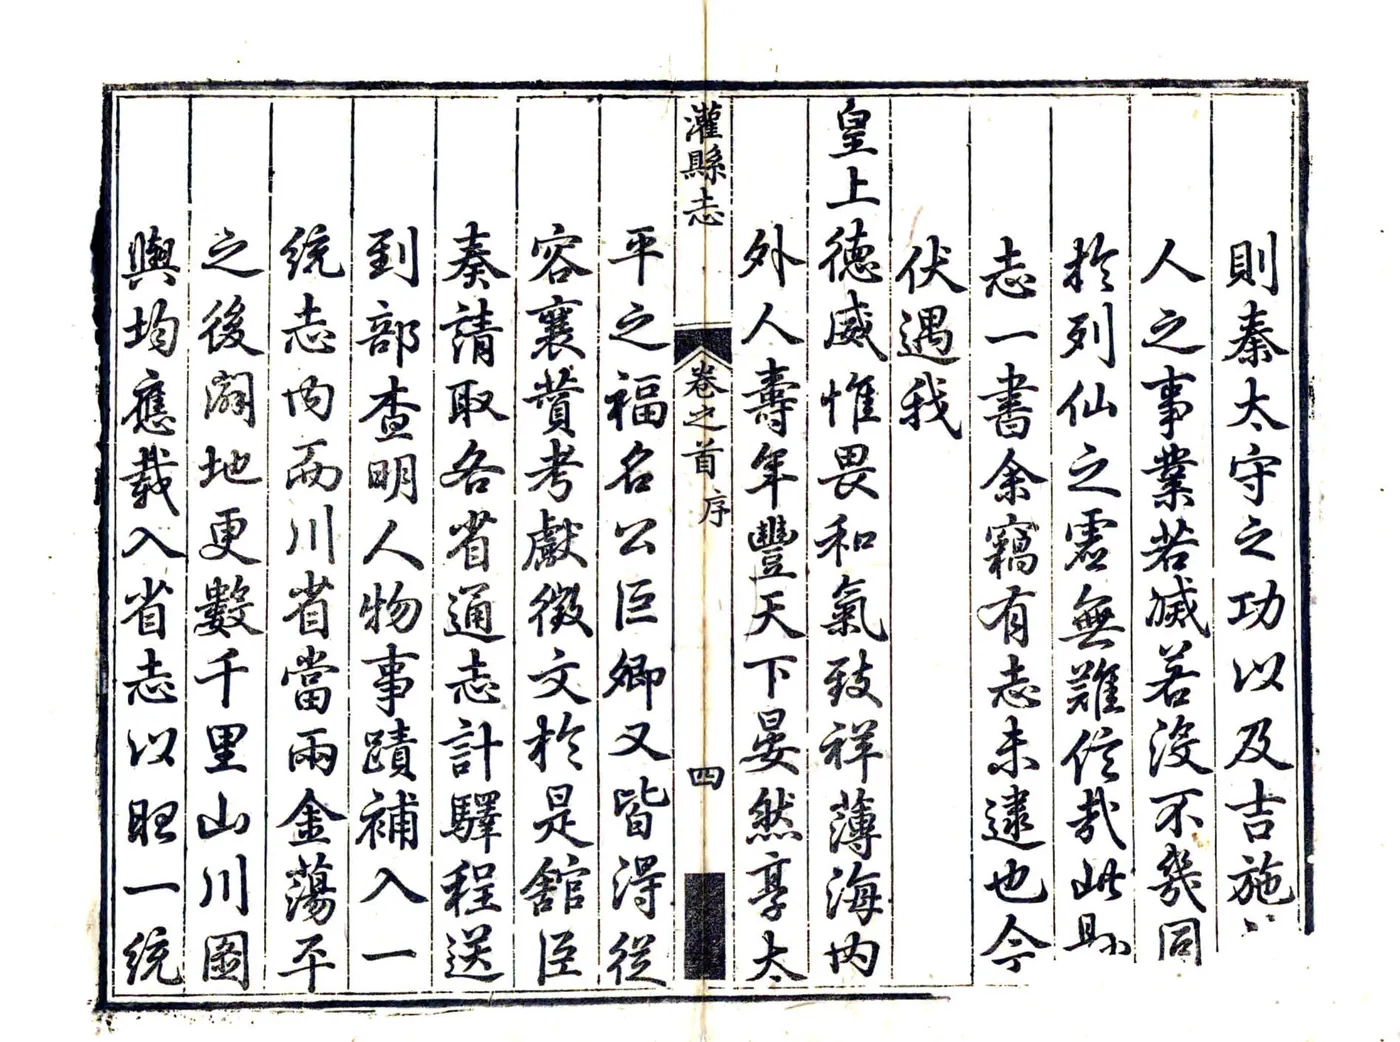 則秦太守之功以及吉施
人之事業若滅若沒不幾同
於列仙之虛無難信哉此縣
志一書余竊有志未逮也今
伏遇我
皇上德威惟畏和氣致祥薄海內
外人壽年豐天下晏然享太
灌縣志
卷之首
序
四
平之福名公巨卿又皆得從
容襄贊考獻徵文於是舘臣
奏請取各省通志計驛程送
到部查明人物事蹟補入一
統志內而川省當兩金蕩平
之後闢地更數千里山川圖
輿均應載入省志以昭一統